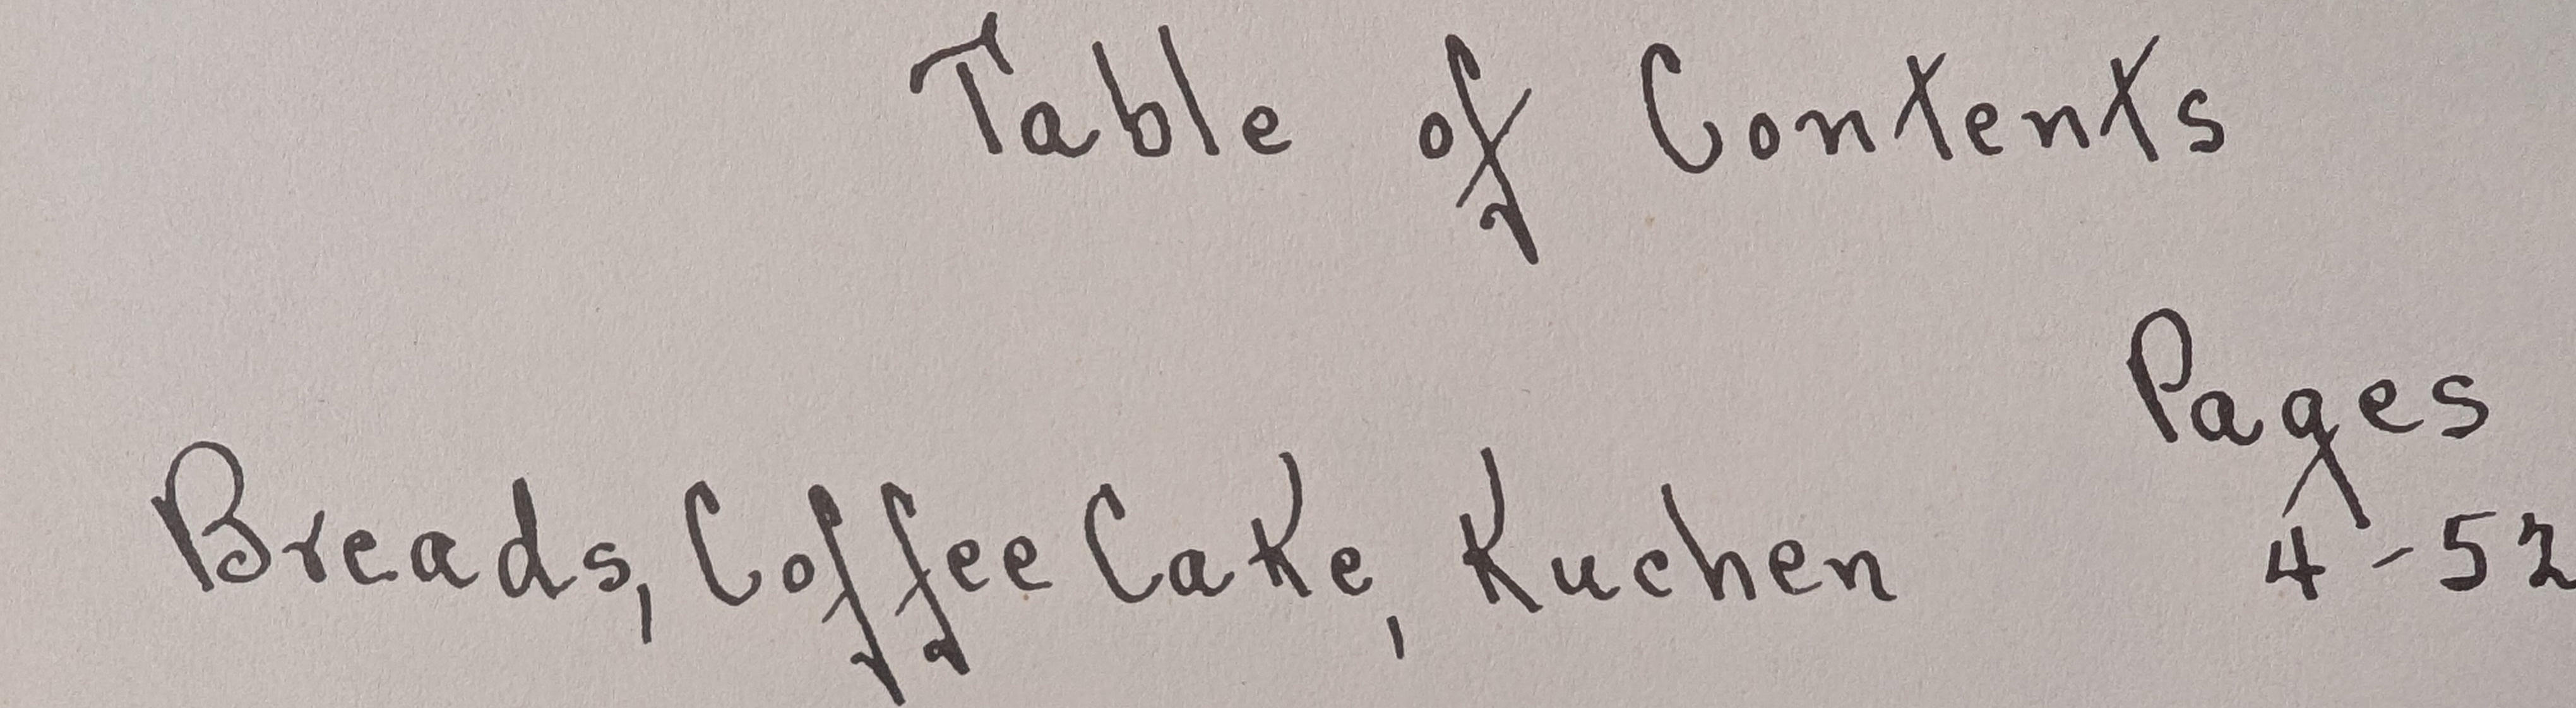 Table of Contents
Pages
Breads, Coffee Cake, Kuchen 4-52